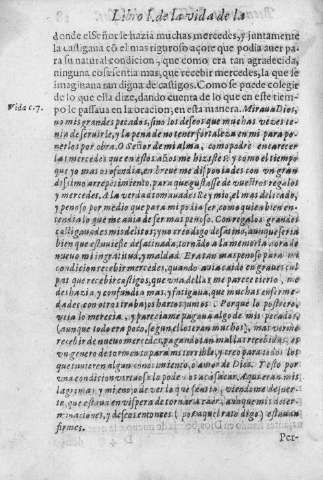 Libro I. de la vida de la
donde el Señor le hazia muchas mercedes, y juntamente
la castigaua cõ el mas riguroso açote que podia auer pa-
ra su natural condicion, que como era tan agradecida,
ninguna cosa sentia mas, que recebir mercedes, la que se
imaginaua tan digna de castigos. Como se puede colegir
de lo que ella dize, dando cuenta de lo que en este tiem-
po le passaua en la oracion, en esta manera. Miraua Dios,
Vida c.7.
no mis grandes pecados, sino los deseos que muchas vezes te-
nia de seruirle, y la pena de no tener fortaleza en mi para po-
nerlos por obra. O Señor de mi alma, como podrè encarecer
las mercedes que en estos años me hizistes: y como el tiempo
que yo mas os ofendia, en breue me disponiades con vn gran-
dissimo arrepentimiento, para que gustasse de vuestros regalos
y mercedes. A la verdad tomauades Rey mio, el mas delicado,
y penoso por medio que para mi podia ser, como quien bien en-
tendia lo que me auia de ser mas penoso. Con regalos grandes
castigauades mis delitos, y no creo digo desatino, aunque seria
bien que estuuiesse desatinada, tornãdo a la memoria aora de
nueuo mi ingratitud, y maldad. Era tan mas penoso para mi
condicion recebir mercedes, quando auia caido en graues cul-
pas que recebir castigos, que vna dellas me parece cierto, me
deshazia y confundia mas, y fatigaua, que muchas enferme-
dades con otros trabajos hartos juntos: Porque lo postrero,
veia lo merecia, y pareciame pagaua algo de mis pecados,
(aunque todo era poco, segun ellos eran muchos) mas verme
recebir de nueuo mercedes, pagando tan mal las recebidas, es
vn genero de tormento para mi terrible, y creo para todos los
que tuuieren algun conocimiento, ò amor de Dios. Y esto por
vna condicion virtuosa lo podemos acà sacar. Aqui eran mis
lagrimas, y mi enojo de ver lo que sentia, viendome de suer-
te, que estaua en vispera de tornar a caer, aunque mis deter-
minaciones, y deseos entonces (por aquel rato digo) estauan
firmes.
Per-